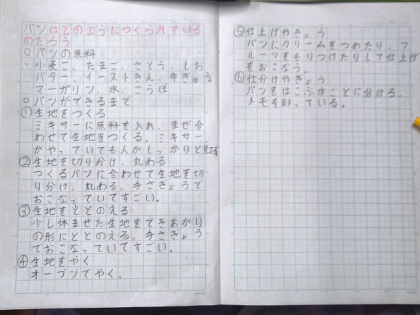 パンはどのようにつくられている
のだろう
○パンの原料
・小麦こ、たまご、さとう、しお
バター、イーストきん、牛にゅう
マーガリン、水、こうぼ
○パンができるまで
①生地をつくる
ミキサーに原料を入れ、まぜ合
わせて生地をつくる。ミキサー
がやっていても人がしっかりと見る
②生地を切り分け、丸める
つくるパンに合わせて生地を切
り分け、丸める。手さぎょうで
おこなっていてすごい。
③生地をととのえる
少し休ませた生地をできあがり
の形にととのえる。手さぎょう
でおこなっていてすごい。
④生地をやく
オーブンでやく。
⑤仕上げさぎょう
パンにクリームをつめたり、フ
ルーツをもりつけたりして仕上げ
をおこなう。
⑥仕分けさぎょう
パンをはこぶ ごとに分ける。
メモを ている。